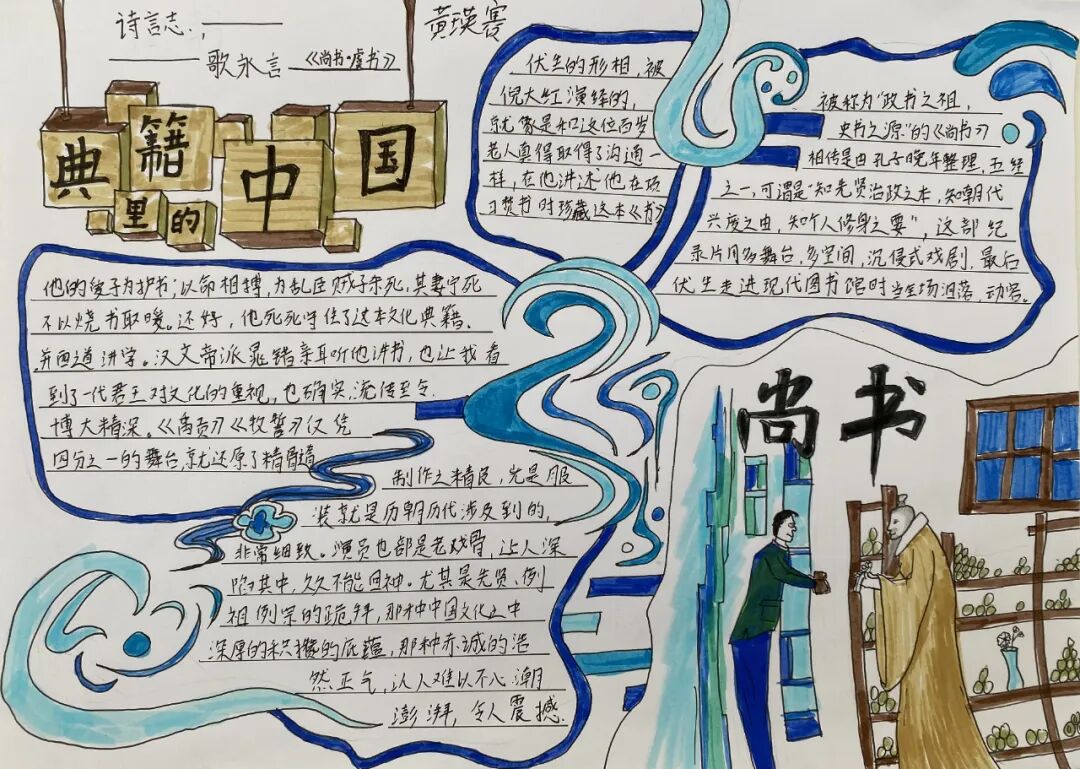 诗言志.,——
——歌永言 《尚书·虞书》
黄瑛
典籍里的中国
伏生的形相,被
倪大红演绎的,
就像是和这位百岁
老人真得取得了沟通一
样,在他讲述他在
焚书时珍藏这本《书》
被称为“政书之祖,
史书之源”的《尚书》
相传是由孔子晚年整理,五经
之一,可谓是“知先贤治政之本,知朝代
兴废之由,知个人修身之要”,这部纪
录片用多舞台,多空间,沉浸式戏剧,最后
伏生走进现代图书馆时当全场泪落,动容。
他的孩子为护书;以命相搏,为乱臣贼子杀死,其妻宁死
不以烧书取暖。还好,他死死守住了这本文化典籍.
并西道讲学。汉文帝派晁错亲耳听他讲书,也让我看
到了一代君王对文化的重视,也确实,流传至今.
博大精深。《禹贡》《牧誓》仅凭
四分之一的舞台,就还原了精
制作之精良,光是服
装就是历朝历代涉及到的,
非常细致。演员也都是老戏骨,让人深
陷其中,久久不能回神。尤其是先贤、例
祖例宗的跪拜,那种中国文化之中
深厚的积攒的底蕴,那种赤诚的浩
然正气,让人难以不心潮
澎湃,令人震撼.
尚书